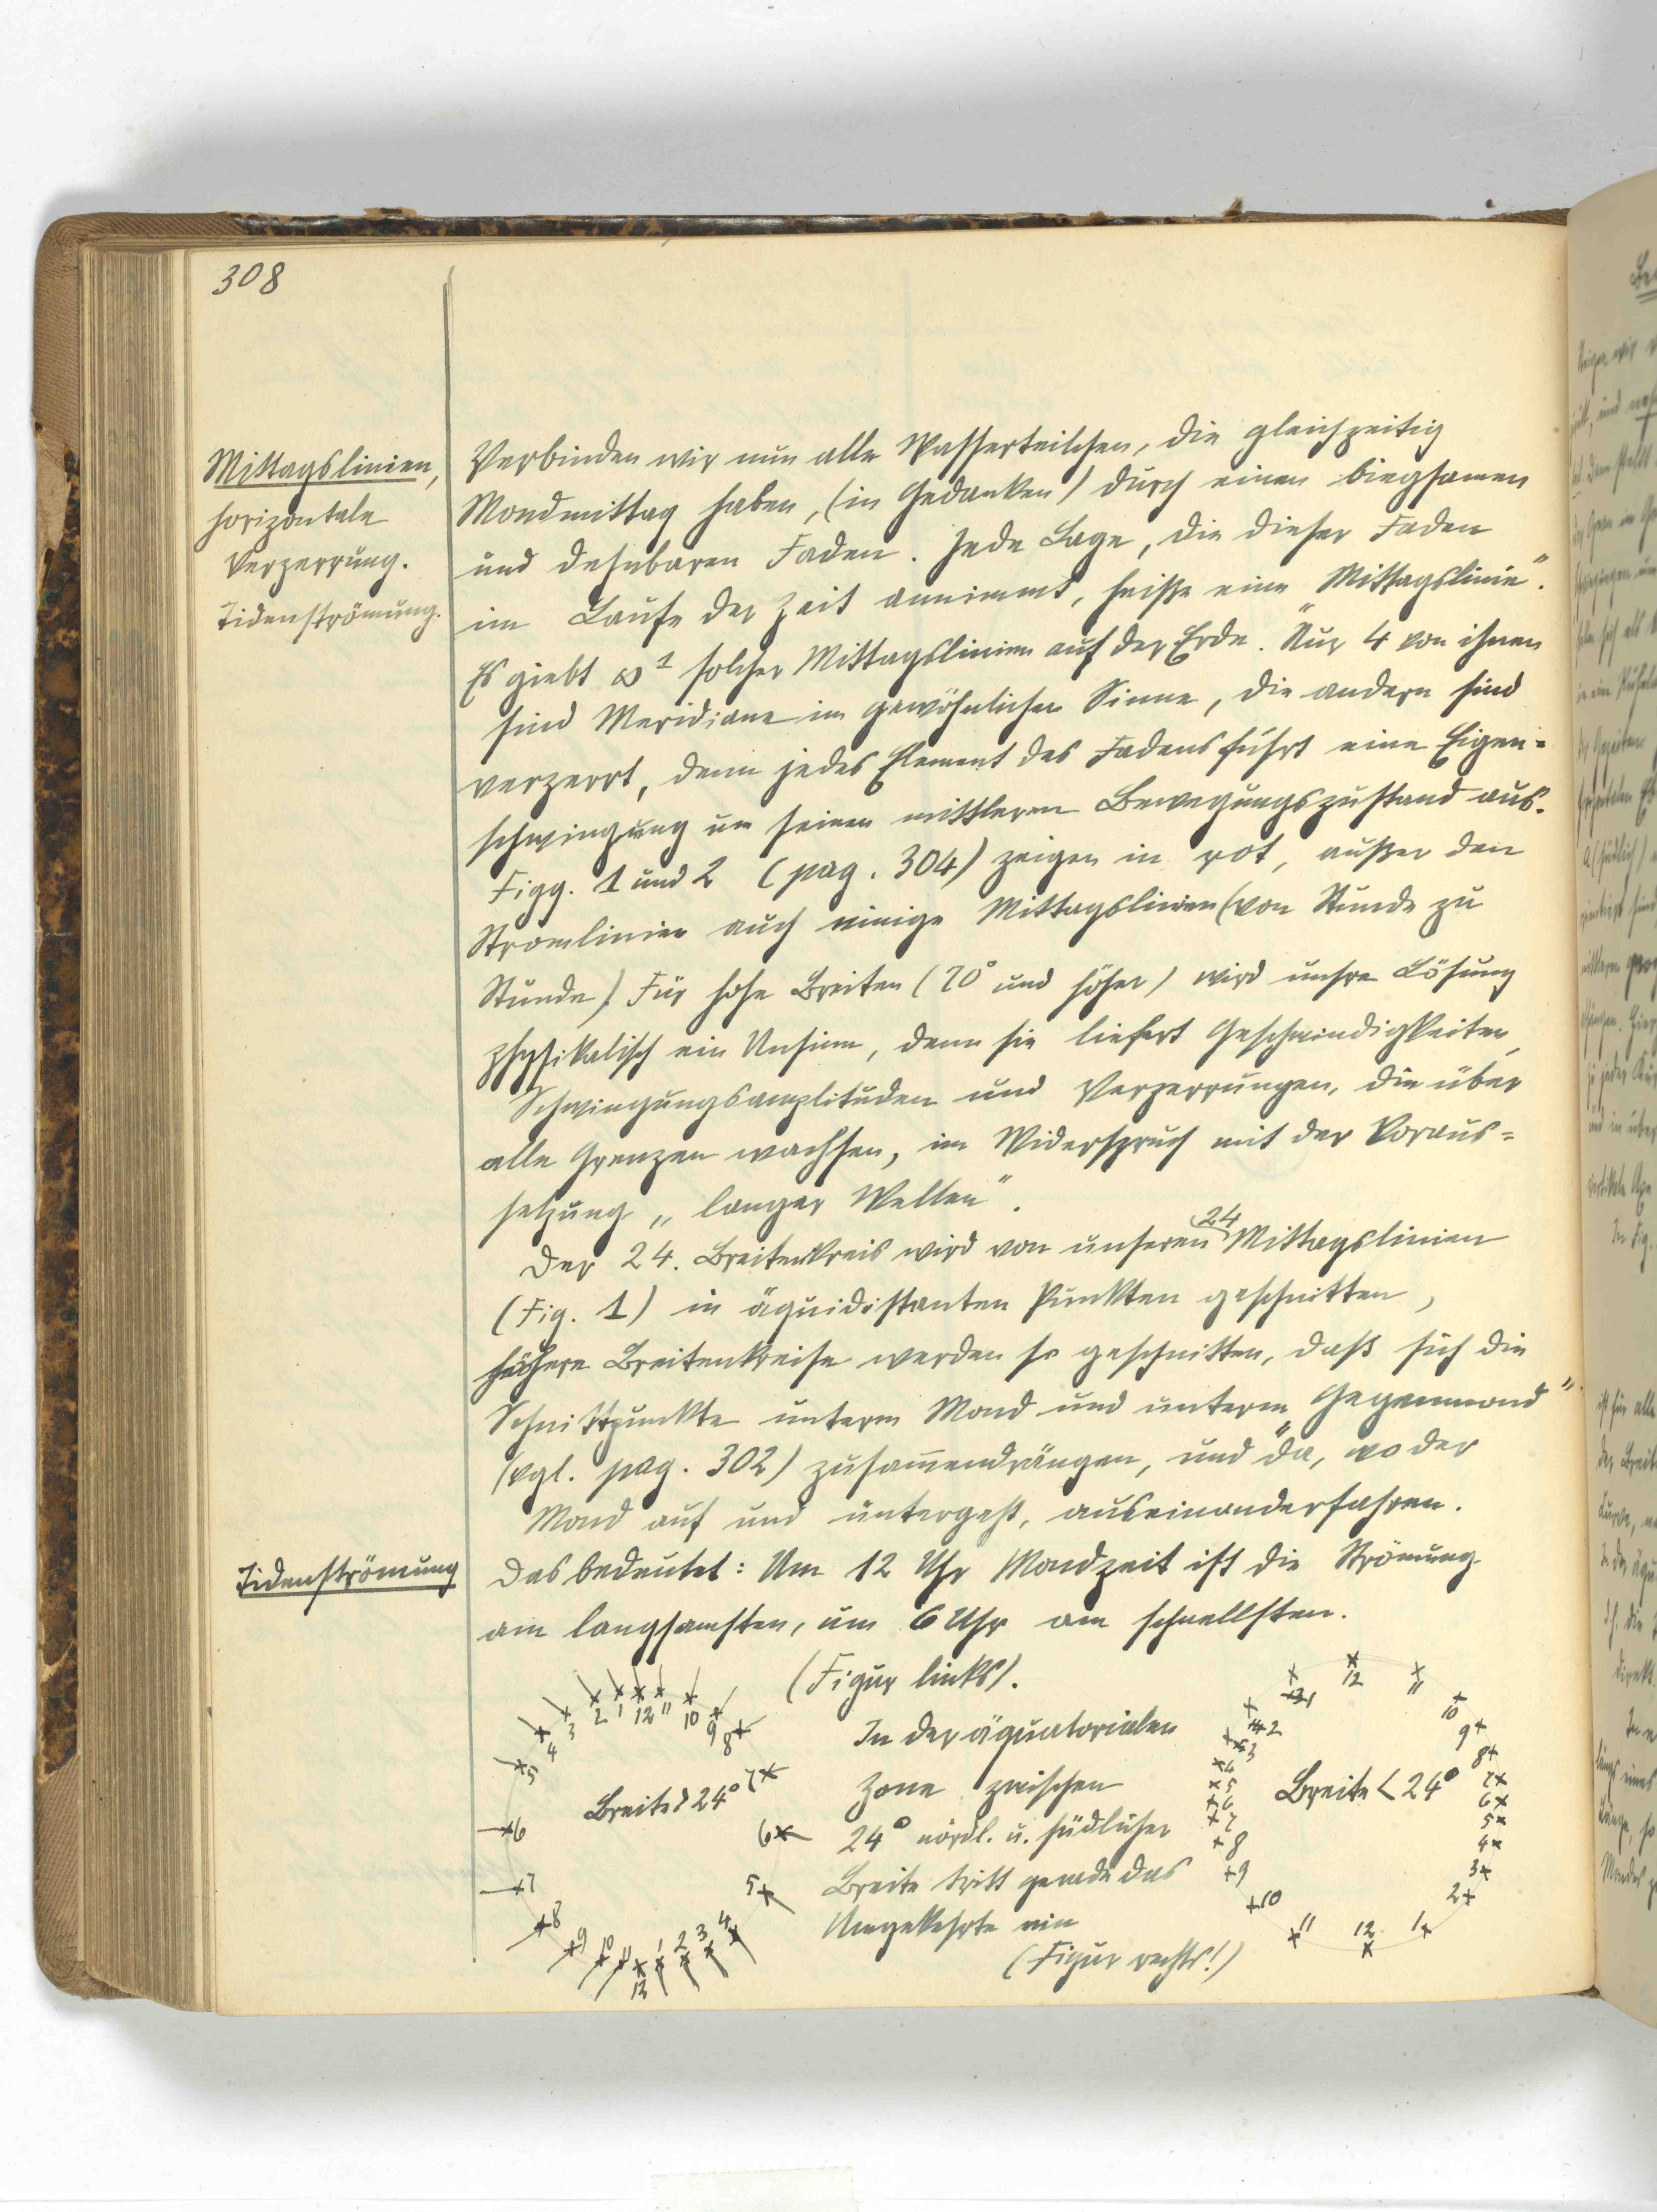 308
Mittagslinien,
horizontale
Verzerrung.
Tidenströmung.
Verbinden wir nun alle Wasserteilchen, die gleichzeitig
Mondmittag haben, (in Gedanken) durch einen biegsamen
und dehnbaren Faden. Jede Lage, die dieser Faden
im Laufe der Zeit annimmt, heiße eine „Mittagslinie".
Es giebt ∞¹ solcher Mittagslinien auf der Erde. Nur 4 von ihnen
sind Meridiane im gewöhnlichen Sinne, die andern sind
verzerrt, denn jedes Element des Fadens führt eine Eigen-
schwingung um seinen mittleren Bewegungszustand aus.
Figg. 1 und 2 (pag. 304) zeigen in rot, außer den
Stromlinien auch einige Mittagslinien (von Stunde zu
Stunde). Für hohe Breiten (70° und höher) wird unsre Lösung
physikalisch ein Unsinn, denn sie liefert Geschwindigkeiten,
Schwingungsamplituden und Verzerrungen, die über
alle Grenzen wachsen, im Widerspruch mit der Voraus=
setzung „langer Wellen".
Der 24. Breitenkreis wird von unseren 24 Mittagslinien
(Fig. 1) in äquidistanten Punkten geschnitten,
höhere Breitenkreise werden so geschnitten, daß sich die
Schnittpunkte unterm Mond und unterm „Gegenmond"
(vgl. pag. 302) zusammendrängen, und da, wo der
Mond auf und untergeht, auseinanderfahren.
Tidenströmung
Das bedeutet: Um 12 Uhr Mondzeit ist die Strömung
am langsamsten, um 6 Uhr am schnellsten.
(Figur links).
In der äquatorialen
Zone zwischen
24° nördl. u. südlicher
Breite tritt gerade das
Umgekehrte ein
(Figur rechts!)
2 1 12 11 10 9 8
3
4
5
6
7
8
9 10 11 12 1 2 3 4
5
6
7
Breite > 24°
12
11
10
9
8
7
6
5
4
3
2
1
12
11
10
9
8
7
6
5
4
3
2
1
Breite < 24°